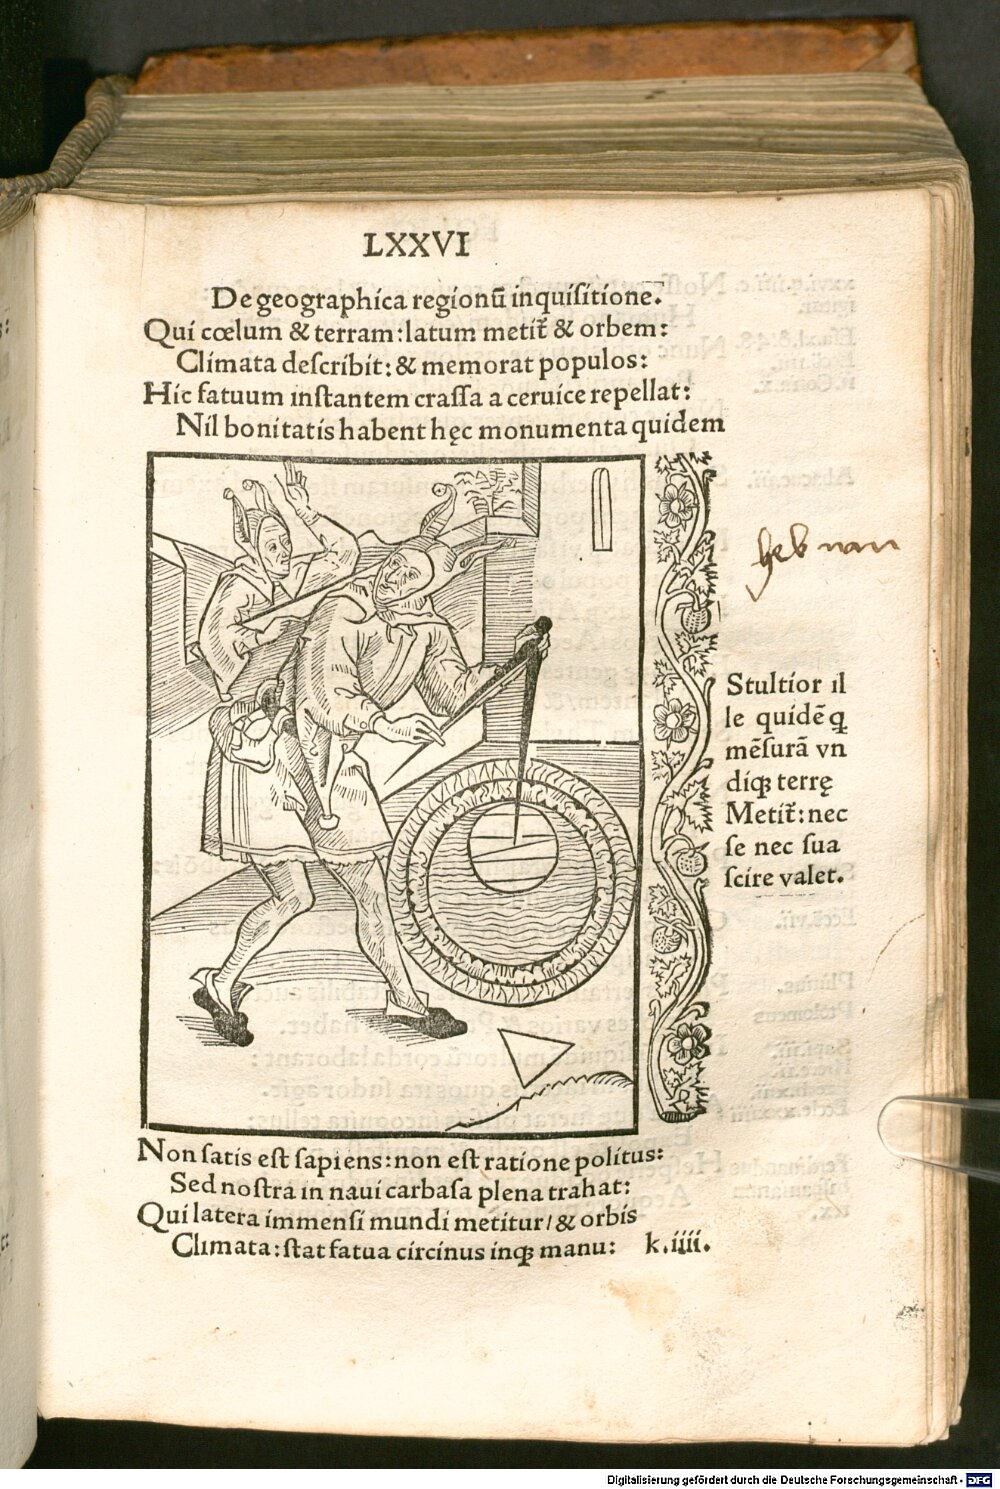 LXXVI
De geographica regionū inquisitione.
Qui cœlum & terram: latum metit̄ & orbem:
Climata describit: & memorat populos:
Hic fatuum instantem crassa a ceruice repellat:
Nil bonitatis habent hęc monumenta quidem
Stultior il
le quidē ꝙ
mēsurā vn
diqꝫ terrę
Metit̄: nec
se nec sua
scire valet.
Non satis est sapiens: non est ratione politus:
Sed nostra in naui carbasa plena trahat:
Qui latera immensi mundi metitur/ & orbis
Climata: stat fatua circinus inqꝫ manu: k.iiii.
Digitalisierung gefördert durch die Deutsche Forschungsgemeinschaft - DFG